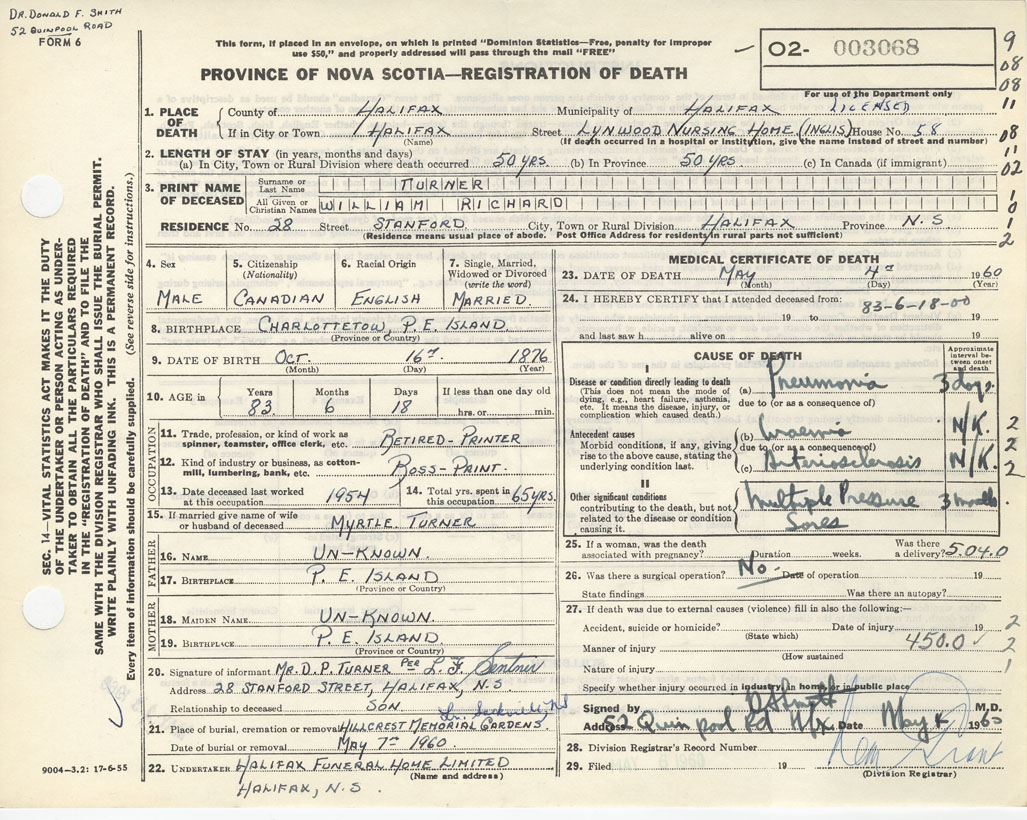 DR. DONALD F. SMITH
52 QUINPOOL ROAD
FORM 6
This form, if placed in an envelope, on which is printed "Dominion Statistics—Free, penalty for improper
use $50," and properly addressed will pass through the mail "FREE"
PROVINCE OF NOVA SCOTIA—REGISTRATION OF DEATH
02- 003068
For use of the Department only
9
08
08
11
08
11
02
1
0
1
2
1. PLACE OF DEATH
County of HALIFAX Municipality of HALIFAX LICENSED
If in City or Town HALIFAX Street LYNWOOD NURSING HOME (INGLIS) House No. 58
(Name) (If death occurred in a hospital or institution, give the name instead of street and number)
2. LENGTH OF STAY (in years, months and days)
(a) In City, Town or Rural Division where death occurred 50 YRS. (b) In Province 50 YRS (c) In Canada (if immigrant)
3. PRINT NAME OF DECEASED
Surname or Last Name TURNER
All Given or Christian Names WILLIAM RICHARD
RESIDENCE No. 28 Street STANFORD City, Town or Rural Division HALIFAX Province N.S
(Residence means usual place of abode. Post Office Address for residents in rural parts not sufficient)
4. Sex MALE
5. Citizenship (Nationality) CANADIAN
6. Racial Origin ENGLISH
7. Single, Married, Widowed or Divorced (write the word) MARRIED.
8. BIRTHPLACE CHARLOTTETOW, P.E. ISLAND.
(Province or Country)
9. DATE OF BIRTH OCT. 16TH 1876
(Month) (Day) (Year)
10. AGE in Years 83 Months 6 Days 18 If less than one day old hrs. or min.
OCCUPATION
11. Trade, profession, or kind of work as spinner, teamster, office clerk, etc. RETIRED-PRINTER
12. Kind of industry or business, as cotton-mill, lumbering, bank, etc. ROSS-PRINT.
13. Date deceased last worked at this occupation 1954
14. Total yrs. spent in this occupation 65 YRS.
15. If married give name of wife or husband of deceased MYRTLE TURNER
FATHER
16. NAME UN-KNOWN.
17. BIRTHPLACE P.E. ISLAND
(Province or Country)
MOTHER
18. MAIDEN NAME UN-KNOWN.
19. BIRTHPLACE P.E. ISLAND
(Province or Country)
20. Signature of informant MR. D.P. TURNER PER L.F.
Address 28 STANFORD STREET, HALIFAX, N.S
Relationship to deceased SON.
21. Place of burial, cremation or removal HILLCREST MEMORIAL GARDENS Lr. Sackville NS
Date of burial or removal MAY 7TH 1960.
22. UNDERTAKER HALIFAX FUNERAL HOME LIMITED
(Name and address)
HALIFAX, N.S.
MEDICAL CERTIFICATE OF DEATH
23. DATE OF DEATH MAY 4TH 1960
(Month) (Day) (Year)
24. I HEREBY CERTIFY that I attended deceased from: 83-6-18-00
19 to 19
and last saw h alive on 19
CAUSE OF DEATH
Approximate interval between onset and death
I
Disease or condition directly leading to death
(This does not mean the mode of dying, e.g., heart failure, asthenia, etc. It means the disease, injury, or complication which caused death.)
(a) Pneumonia 3 days.
due to (or as a consequence of)
Antecedent causes
Morbid conditions, if any, giving rise to the above cause, stating the underlying condition last.
(b) Uraemia N/K. 2
due to (or as a consequence of) 2
(c) Arteriosclerosis N/K. 2
II
Other significant conditions contributing to the death, but not related to the disease or condition causing it.
Multiple Pressure Sores 3 months
25. If a woman, was the death associated with pregnancy? Duration weeks. Was there a delivery? 504.0
26. Was there a surgical operation? No. Date of operation 19
State findings Was there an autopsy?
27. If death was due to external causes (violence) fill in also the following:—
Accident, suicide or homicide? Date of injury 19 2
(State which)
Manner of injury 450.0 2
(How sustained)
Nature of injury 1
Specify whether injury occurred in industry, in home or in public place
Signed by M.D.
Address 52 Quinpool Rd Hfx Date May 4 1960
28. Division Registrar's Record Number
29. Filed MAY 6 1960 19
(Division Registrar)
SEC. 14—VITAL STATISTICS ACT MAKES IT THE DUTY
OF THE UNDERTAKER OR PERSON ACTING AS UNDER-
TAKER TO OBTAIN ALL THE PARTICULARS REQUIRED
IN THE "REGISTRATION OF DEATH" AND TO FILE THE
SAME WITH THE DIVISION REGISTRAR WHO SHALL ISSUE THE BURIAL PERMIT.
WRITE PLAINLY WITH UNFADING INK. THIS IS A PERMANENT RECORD.
Every item of information should be carefully supplied. (See reverse side for instructions.)
9004-3.2: 17-6-55